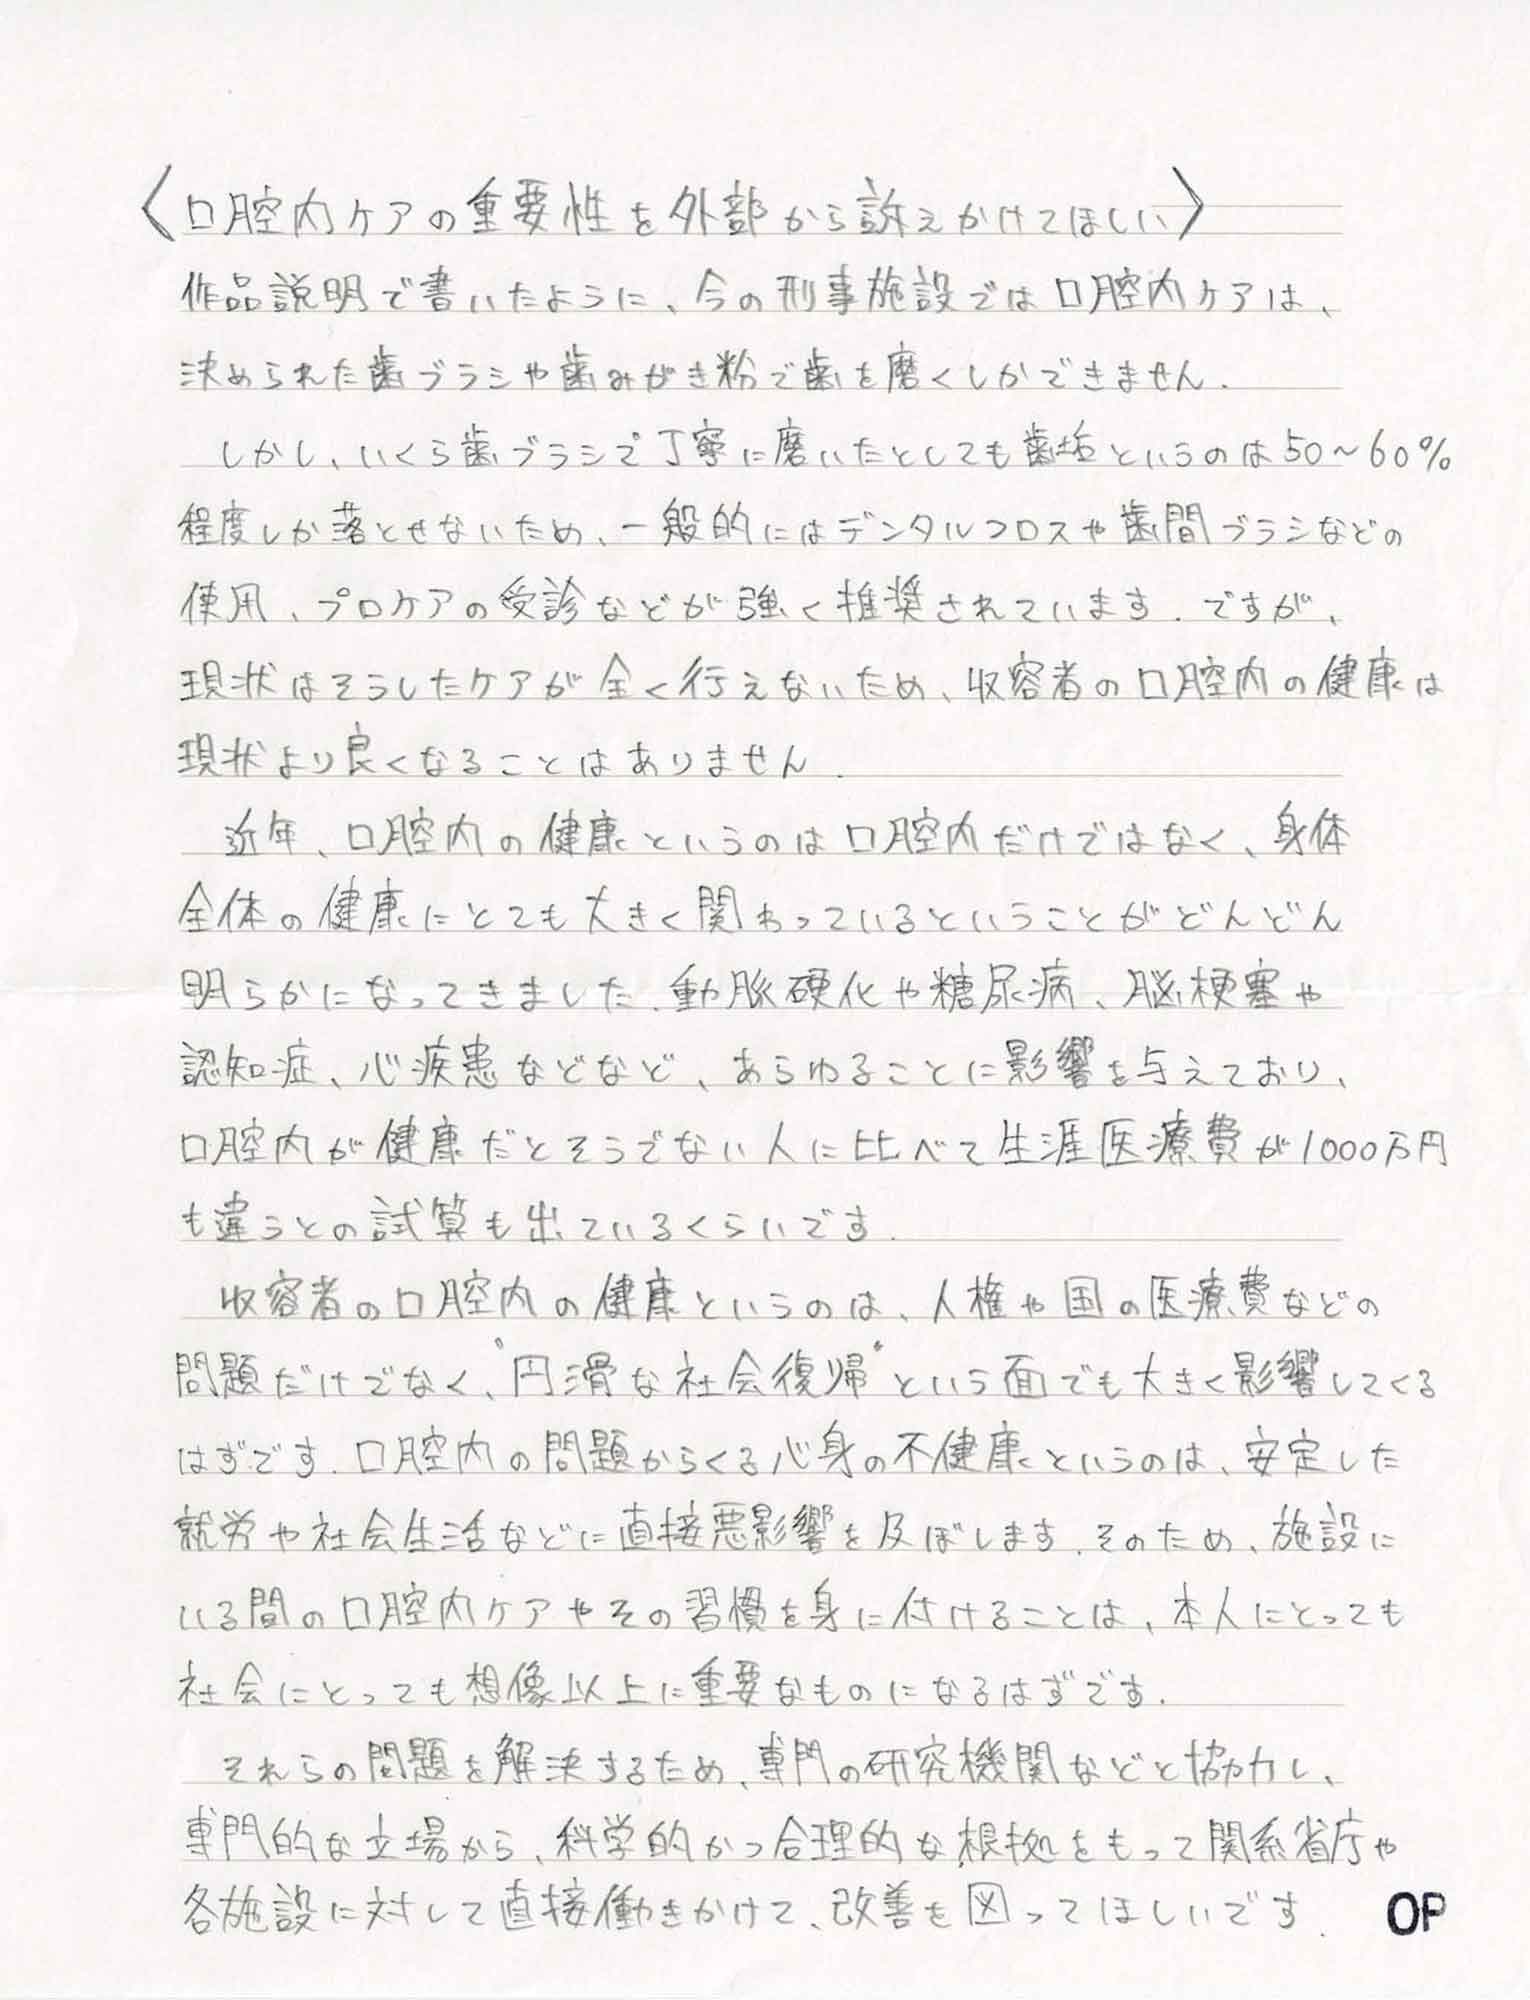 〈口腔内ケアの重要性を外部から訴えかけてほしい〉
作品説明で書いたように、今の刑事施設では口腔内ケアは、
決められた歯ブラシや歯みがき粉で歯を磨くしかできません.
しかし、いくら歯ブラシで丁寧に磨いたとしても歯垢というのは50～60%
程度しか落とせないため、一般的にはデンタルフロスや歯間ブラシなどの
使用、プロケアの受診などが強く推奨されています. ですが、
現状はそうしたケアが全く行えないため、収容者の口腔内の健康は
現状より良くなることはありません.
近年、口腔内の健康というのは口腔内だけではなく、身体
全体の健康にとても大きく関わっているということがどんどん
明らかになってきました. 動脈硬化や糖尿病、脳梗塞や
認知症、心疾患などなど、あらゆることに影響を与えており、
口腔内が健康だとそうでない人に比べて生涯医療費が1000万円
も違うとの試算も出ているくらいです.
収容者の口腔内の健康というのは、人権や国の医療費などの
問題だけでなく、"円滑な社会復帰"という面でも大きく影響してくる
はずです. 口腔内の問題からくる心身の不健康というのは、安定した
就労や社会生活などに直接悪影響を及ぼします. そのため、施設に
いる間の口腔内ケアやその習慣を身に付けることは、本人にとっても
社会にとっても想像以上に重要なものになるはずです.
それらの問題を解決するため、専門の研究機関などと協力し、
専門的な立場から、科学的かつ合理的な根拠をもって関係省庁や
各施設に対して直接働きかけて、改善を図ってほしいです. OP